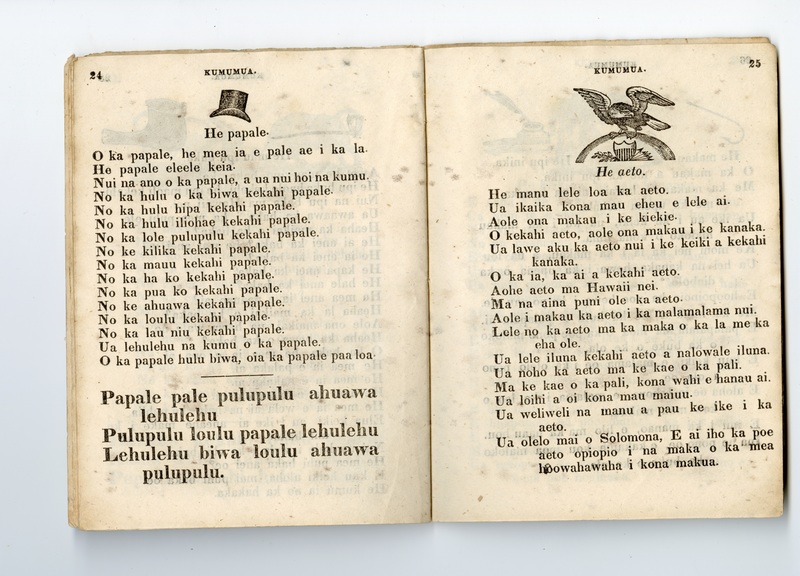 24
KUMUMUA.
He papale.
O ka papale, he mea ia e pale ae i ka la.
He papale eleele keia.
Nui na ano o ka papale, a ua nui hoi na kumu.
No ka hulu o ka biwa kekahi papale.
No ka hulu hipa kekahi papale.
No ka hulu iliohae kekahi papale.
No ka lole pulupulu kekahi papale.
No ke kilika kekahi papale.
No ka mauu kekahi papale.
No ka ha ko kekahi papale.
No ka pua ko kekahi papale.
No ke ahuawa kekahi papale.
No ka loulu kekahi papale.
No ka lau niu kekahi papale.
Ua lehulehu na kumu o ka papale.
O ka papale hulu biwa, oia ka papale paa loa.
Papale pale pulupulu ahuawa
lehulehu
Pulupulu loulu papale lehulehu
Lehulehu biwa loulu ahuawa
pulupulu.
KUMUMUA.
25
He aeto.
He manu lele loa ka aeto.
Ua ikaika kona mau eheu e lele ai.
Aole ona makau i ke kiekie.
O kekahi aeto, aole ona makau i ke kanaka.
Ua lawe aku ka aeto nui i ke keiki a kekahi
kanaka.
O ka ia, ka ai a kekahi aeto.
Aohe aeto ma Hawaii nei.
Ma na aina puni ole ka aeto.
Aole i makau ka aeto i ka malamalama nui.
Lele no ka aeto ma ka maka o ka la me ka
eha ole.
Ua lele iluna kekahi aeto a nalowale iluna.
Ua noho ka aeto ma ke kae o ka pali.
Ma ke kae o ka pali, kona wahi e hanau ai.
Ua loihi a oi kona mau maiuu.
Ua weliweli na manu a pau ke ike i ka
aeto.
Ua olelo mai o Solomona, E ai iho ka poe
aeto opiopio i na maka o ka mea
hoowahawaha i kona makua.